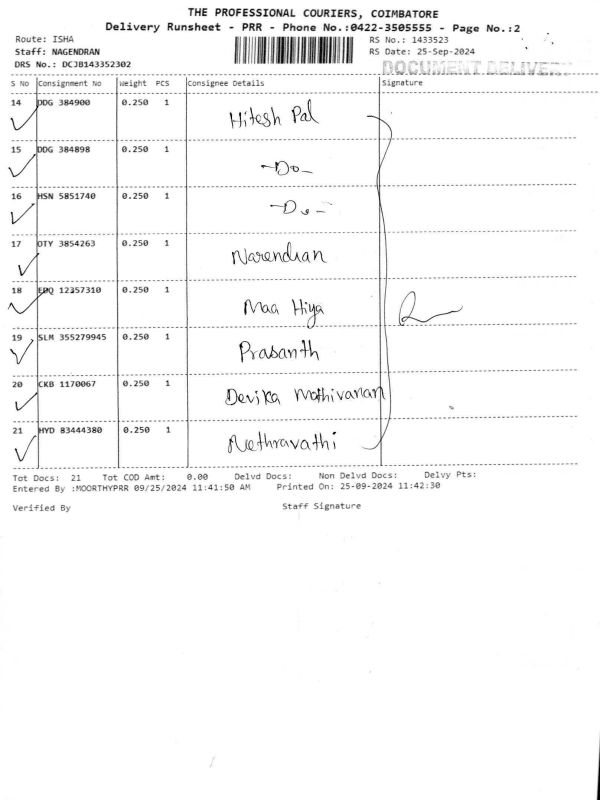 THE PROFESSIONAL COURIERS, COIMBATORE
Delivery Runsheet - PRR - Phone No.:0422-3505555 - Page No.:2
Route: ISHA RS No.: 1433523
Staff: NAGENDRAN RS Date: 25-Sep-2024
DRS No.: DCJB143352302 DOCUMENT DELIVERY
S No Consignment No Weight PCS Consignee Details Signature
14 DDG 384900 0.250 1 Hitesh Pal
15 DDG 384898 0.250 1 -Do-
16 HSN 5851740 0.250 1 -Do-
17 OTY 3854263 0.250 1 Narendran
18 EPQ 12357310 0.250 1 Maa Hiya
19 SLM 355279945 0.250 1 Prasanth
20 CKB 1170067 0.250 1 Devika Mathivanan
21 HYD 83444380 0.250 1 Nethravathi
Tot Docs: 21 Tot COD Amt: 0.00 Delvd Docs: Non Delvd Docs: Delvy Pts:
Entered By :MOORTHYPRR 09/25/2024 11:41:50 AM Printed On: 25-09-2024 11:42:30
Verified By Staff Signature